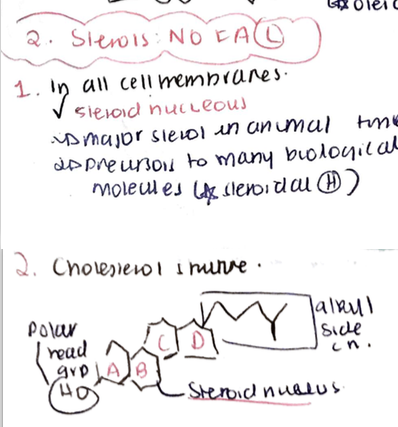 2. Sterols: NO FA
1. In all cell membranes.
steroid nucleous
major sterol in animal
precursors to many biological
molecules ( steroidal (H) )
2. Cholesterol
alkyl
side
Polar
head
grp
HO
A B C D
Steroid nucleus